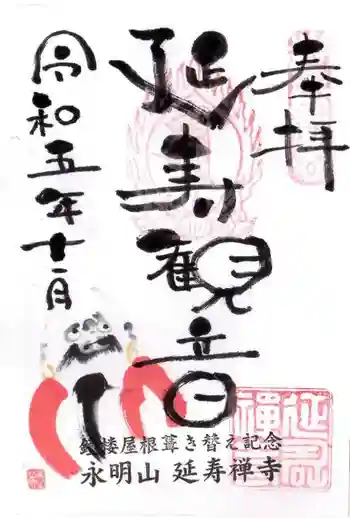 奉拝
延寿観音
令和五年十一月
鐘楼屋根葺き替え記念
永明山 延寿禅寺